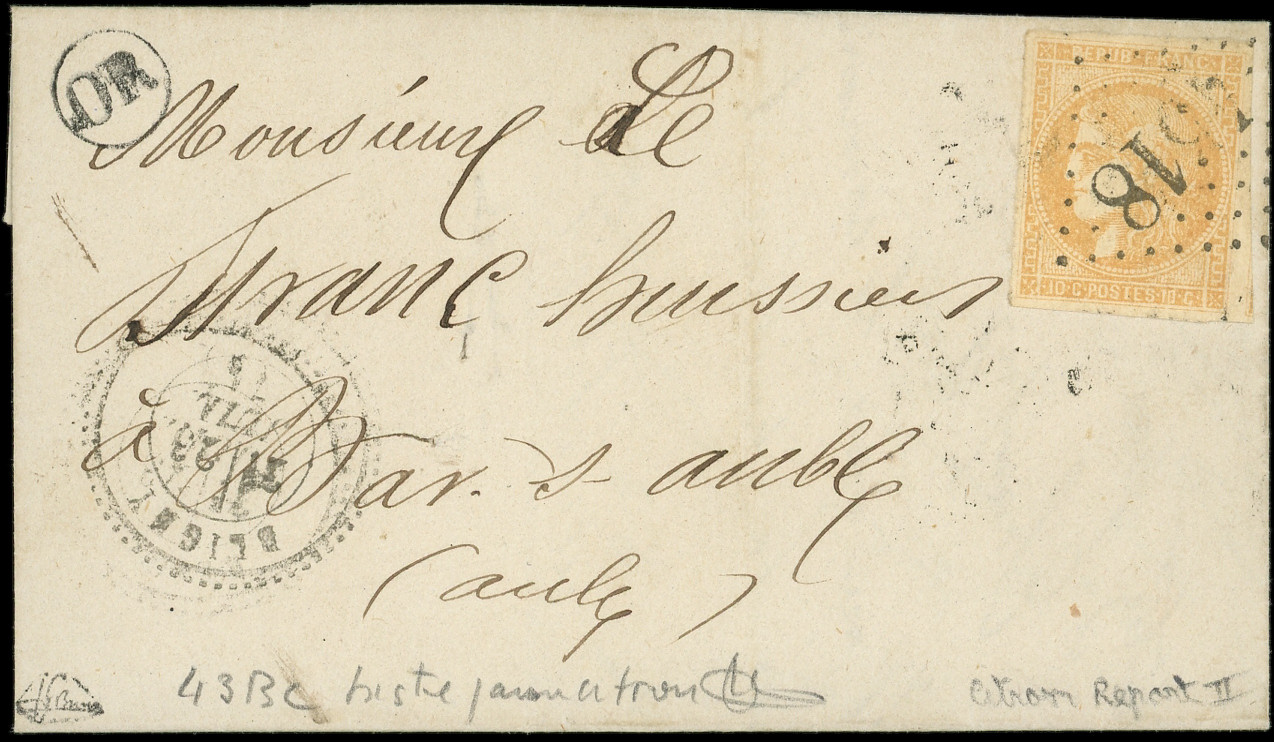 OR
REPUB. FRANC.
18
10 C. POSTES 10 C.
Monsieur Le
franc huissier
à Bar. s- aube
(aube)
BLIGNY
43Bc bistre jaune citron
citron Report II